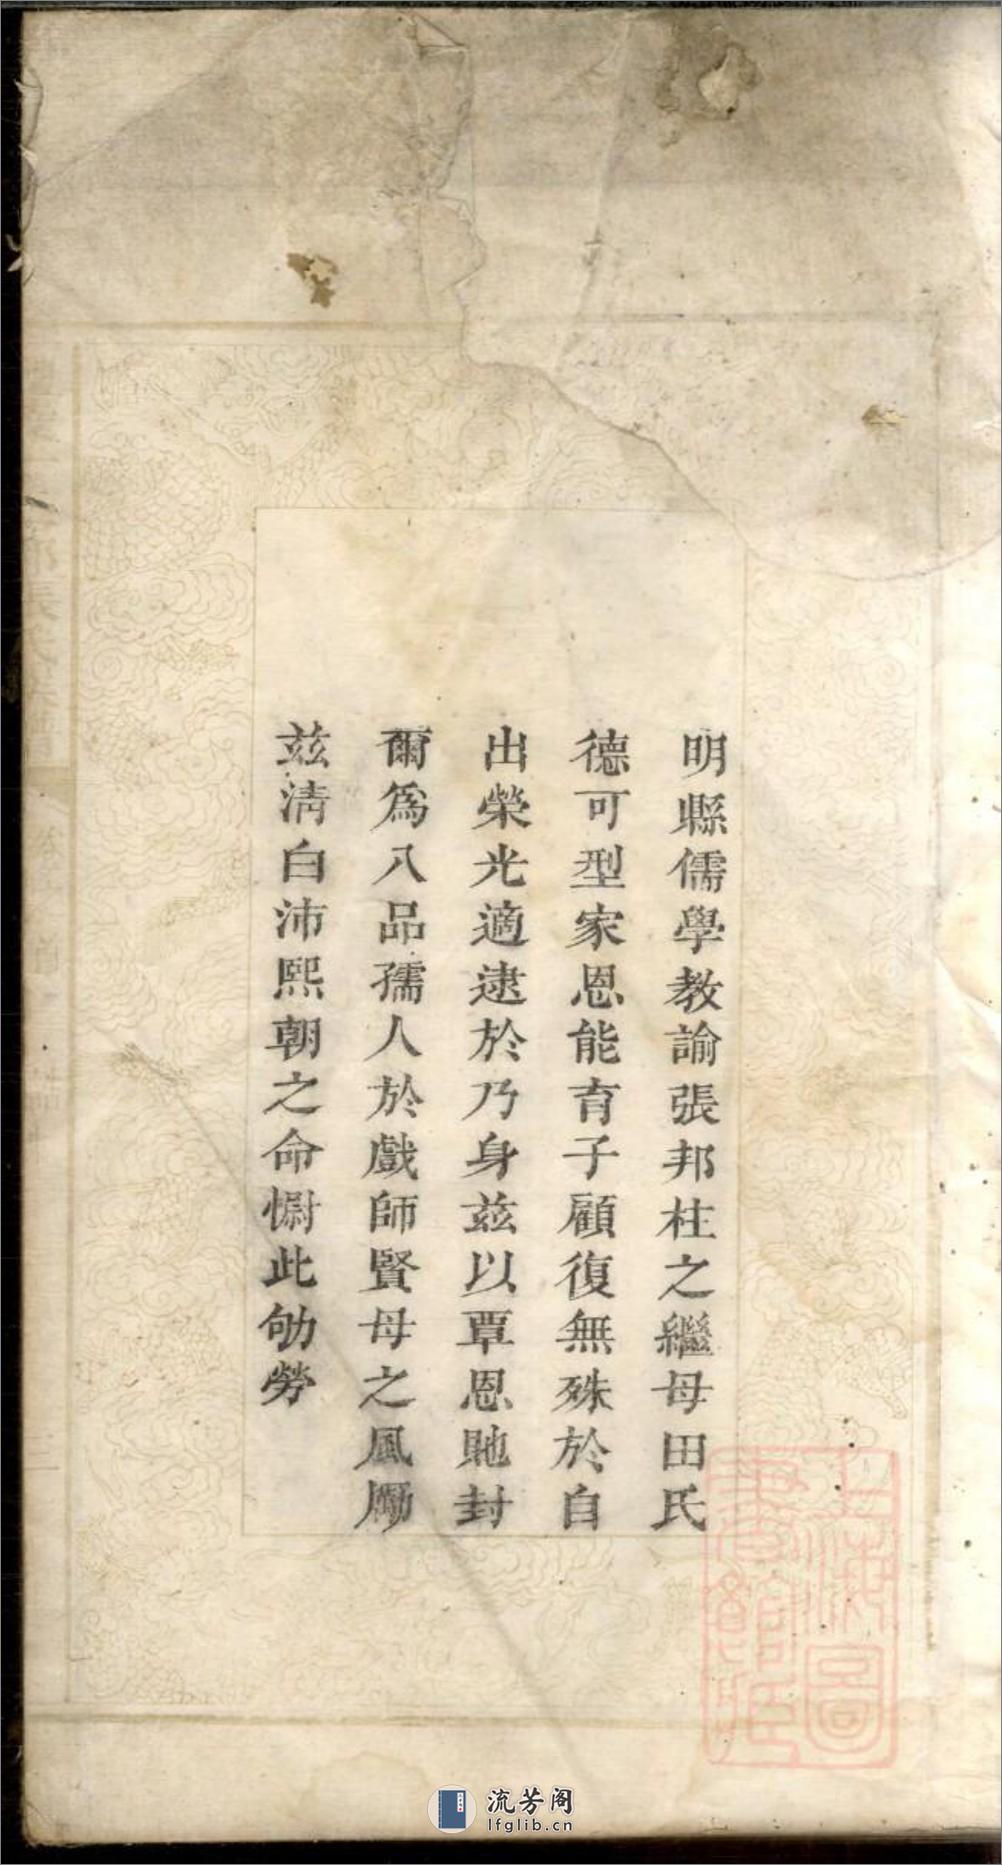 明縣儒學教諭張邦柱之繼母田氏
德可型家恩能育子顧復無殊於自
出榮光適逮於乃身茲以覃恩貤封
爾為八品孺人於戲師賢母之風勵
茲清白沛熙朝之命慰此劬勞
上海圖
書館藏
流芳阁
lfglib.cn